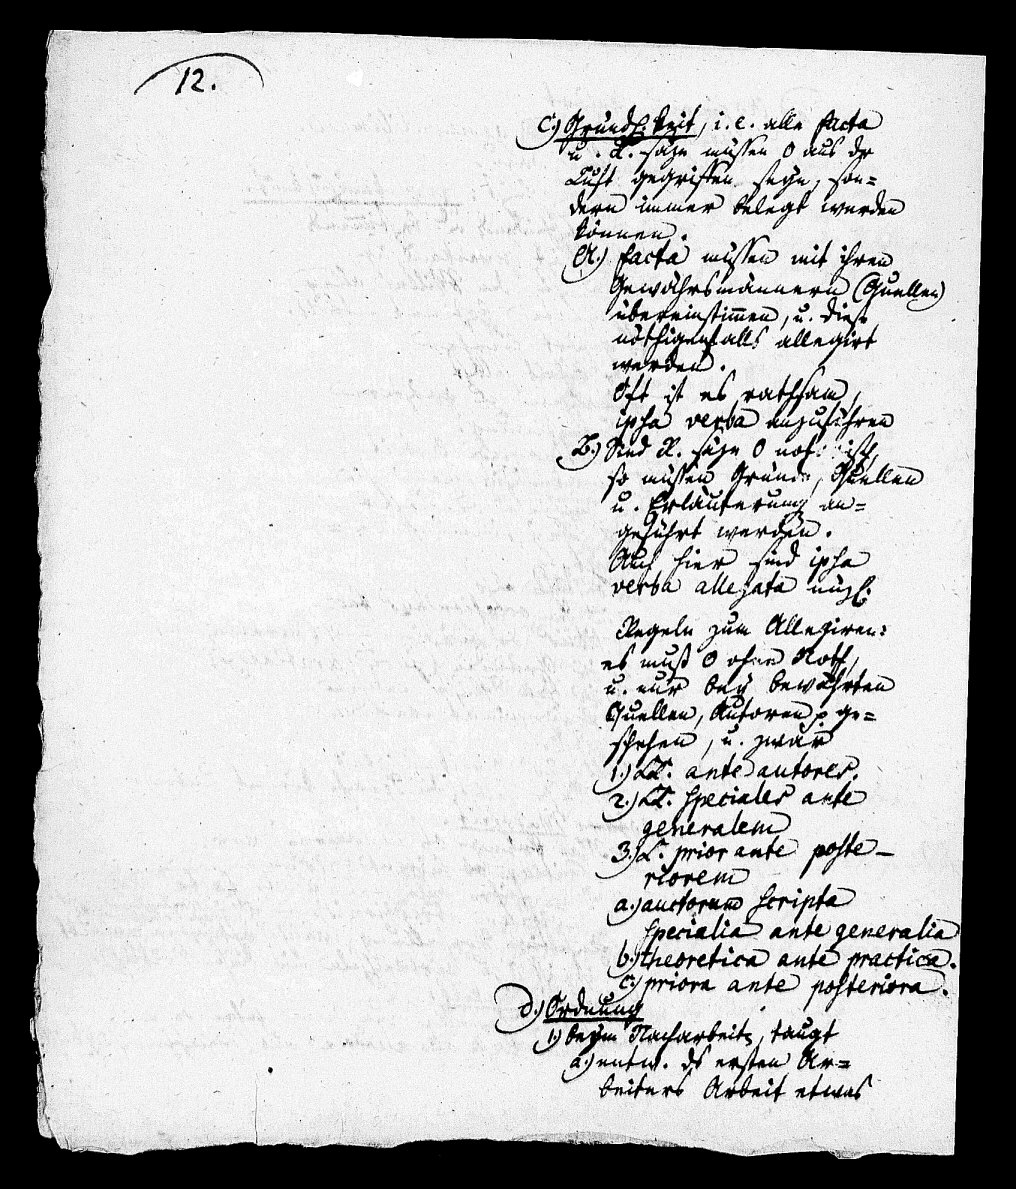 12.
C.) Gründlichkeit, i. e. alle facta
u. R. säze müssen 0 aus dr
Luft gegriffen seyn, son=
dern immer belegt werden
können.
A.) facta müssen mit ihren
Gewährsmännern (Quellen)
übereinstimmen, u. diese
nöthigenfalls allegirt
werden.
Oft ist es rathsam,
ipsa verba anzuführen
B.) Sind R. säze 0 notorisch,
so müssen Gründe, Quellen
u. Erläuterung an=
geführt werden.
Auch hier sind ipsa
verba allegata nüzl.
Regeln zum Allegiren:
es muß 0 ohne Noth,
u. nur bey bewährten
Quellen, Autoren p ge=
schehen, u. zwar
1.) LL. ante autores.
2.) LL. speciales ante
generalem
3.) L. prior ante poste-
riorem
a.) auctorum scripta
specialia ante generalia
b.) theoretica ante practica.
c.) priora ante posteriora.
D.) Ordnung
1.) beym Nacharbeiten, taugt
a.) entw. ds ersten Ar=
beiters Arbeit etwas